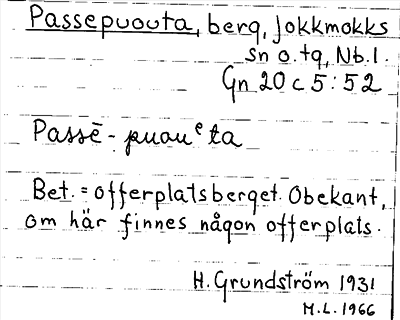 Passepuouta, berg, Jokkmokks
sn o. tg, Nb. l.
Gn 20 c 5 : 52
Passē - puauᵉta
Bet. = offerplatsberget. Obekant,
om här finnes någon offerplats.
H. Grundström 1931
M.L. 1966